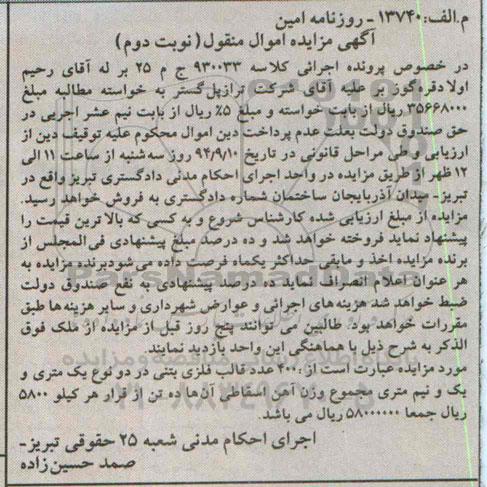 م.الف: ۱۳۷۴۰ - روزنامه امین
آگهی مزایده اموال منقول (نوبت دوم)
در خصوص پرونده اجرائی کلاسه ۹۳۰۰۳۳ ج م ۲۵ بر له آقای رحیم
اولادقره‌گوز بر علیه آقای شرکت ترازپل‌گستر به خواسته مطالبه مبلغ
۳۵۶۶۸۰۰۰ ریال از بابت خواسته و مبلغ ۵٪ ریال از بابت نیم عشر اجرایی در
حق صندوق دولت بعلت عدم پرداخت دین اموال محکوم علیه توقیف دین از
ارزیابی و طی مراحل قانونی در تاریخ ۹۴/۹/۱۰ روز سه‌شنبه از ساعت ۱۱ الی
۱۲ ظهر از طریق مزایده در واحد اجرای احکام مدنی دادگستری تبریز واقع در
تبریز- میدان آذربایجان ساختمان شماره دادگستری به فروش خواهد رسید.
مزایده از مبلغ ارزیابی شده کارشناس شروع و به کسی که بالاترین قیمت را
پیشنهاد نماید فروخته خواهد شد و ده درصد مبلغ پیشنهادی فی‌المجلس از
برنده مزایده اخذ و مابقی حداکثر یکماه فرصت داده می‌شود برنده مزایده به
هر عنوان اعلام انصراف نماید ده درصد پیشنهادی به نفع صندوق دولت
ضبط خواهد شد هزینه‌های اجرائی و عوارض شهرداری و سایر هزینه‌ها طبق
مقررات خواهد بود. طالبین می توانند پنج روز قبل از مزایده از ملک فوق
الذکر به شرح ذیل با هماهنگی این واحد بازدید نمایند.
مورد مزایده عبارت است از: ۴۰۰ عدد قالب فلزی بتنی در دو نوع یک متری و
یک و نیم متری مجموع وزن آهن اسقاطی آن‌ها ده تن از قرار هر کیلو ۵۸۰۰
ریال جمعا ۵۸۰۰۰۰۰۰ ریال می باشد.
اجرای احکام مدنی شعبه ۲۵ حقوقی تبریز-
صمد حسین‌زاده
ParsNamadData